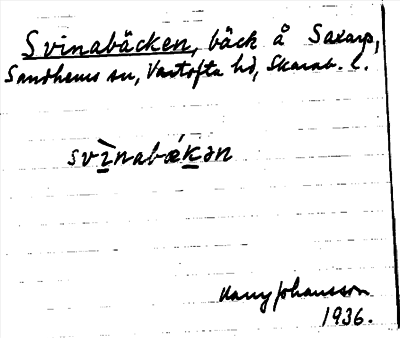 Svinabäcken, bäck å Saxarp,
Sandhems sn, Vartofta hd, Skarab. l.
svìnabǽkən
Harry Johansson
1936.